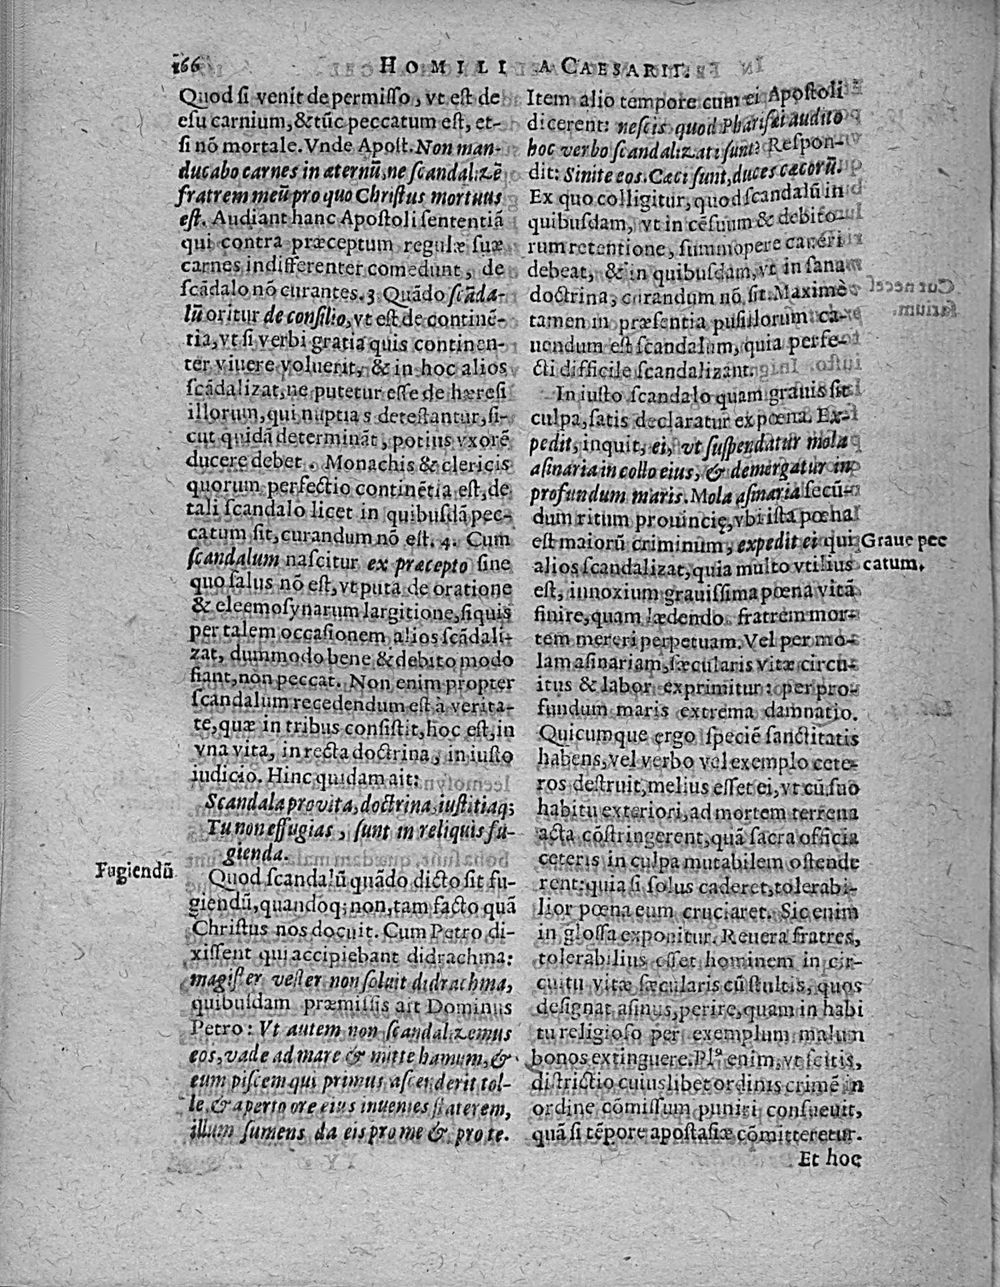 166 HOMILI A CAESARII.
Quod si venit de permisso, vt est de
esu carnium, & tūc peccatum est, et-
si nō mortale. Vnde Apost. Non man-
ducabo carnes in æternū, ne scandalizē
fratrem meū pro quo Christus mortuus
est. Audiant hanc Apostoli sententiā
qui contra præceptum regulæ suæ
carnes indifferenter comedunt, de
scādalo nō curantes. 3 Quādo scāda-
lū oritur de consilio, vt est de continē-
tia, vt si verbi gratia quis continen-
ter viuere voluerit, & in hoc alios
scādalizat, ne putetur esse de hæresi
illorum, qui nuptias detestantur, si-
cut quidā determināt, potius vxorē
ducere debet. Monachis & clericis
quorum perfectio continētia est, de
tali scandalo licet in quibusdā pec-
catum sit, curandum nō est. 4. Cum
scandalum nascitur ex præcepto sine
quo salus nō est, vt puta de oratione
& eleemosynarum largitione, si quis
per talem occasionem alios scādali-
zat, dummodo bene & debito modo
fiant, non peccat. Non enim propter
scandalum recedendum est à verita-
te, quæ in tribus consistit, hoc est, in
vna vita, in recta doctrina, in iusto
iudicio. Hinc quidam ait:
Scandala pro vita, doctrina, iustitiaq;
Tu non effugias, sunt in reliquis fu-
gienda.
Fugiendū
Quod scandalū quādo dicto sit fu-
giendū, quandoq; non, tam facto quā
Christus nos docuit. Cum Petro di-
xissent qui accipiebant didrachma:
magister vester non soluit didrachma,
quibusdam præmissis ait Dominus
Petro: Vt autem non scandalizemus
eos, vade ad mare & mitte hamum, &
eum piscem qui primus ascenderit tol-
le, & aperto ore eius inuenies staterem,
illum sumens da eis pro me & pro te.
Item alio tempore cum ei Apostoli
dicerent: nescis quod Pharisæi audito
hoc verbo scandalizati sunt? Respon-
dit: Sinite eos. Cæci sunt, duces cæcorū.
Ex quo colligitur, quod scandalū in
quibusdam, vt in cēsuum & debito-
rum retentione, summopere caueri
debeat, & in quibusdam, vt in sana
doctrina, curandum nō sit. Maximè
tamen in præsentia pusillorum ca-
uendum est scandalum, quia perfe-
cti difficile scandalizant.
In iusto scandalo quam grauis sit
culpa, satis declaratur ex pœna. Ex-
pedit, inquit, ei, vt suspendatur mola
asinaria in collo eius, & demergatur in
profundum maris. Mola asinaria secū-
dum ritum prouincię, vbi ista pœna
est maiorū criminum, expedit ei qui
Graue pec
alios scandalizat, quia multo vtilius
catum.
est, innoxium grauissima pœna vitā
finire, quam lædendo fratrem mor-
tem mereri perpetuam. Vel per mo-
lam asinariam, sæcularis vitæ circu-
itus & labor exprimitur: per pro-
fundum maris extrema damnatio.
Quicumque ergo speciē sanctitatis
habens, vel verbo vel exemplo cete-
ros destruit, melius esset ei, vt cū suo
habitu exteriori, ad mortem terrena
acta cōstringerent, quā sacra officia
ceteris in culpa mutabilem ostende
rent: quia si solus caderet, tolerabi-
lior pœna eum cruciaret. Sic enim
in glossa exponitur. Reuera fratres,
tolerabilius esset hominem in cir-
cuitu vitæ sæcularis cū stultis, quos
designat asinus, perire, quam in habi
tu religioso per exemplum malum
bonos extinguere. Plᵃ enim, vt scitis,
districtio cuiuslibet ordinis crimē in
ordine cōmissum puniri consueuit,
quā si tēpore apostasiæ cōmitteretur.
Et hoc